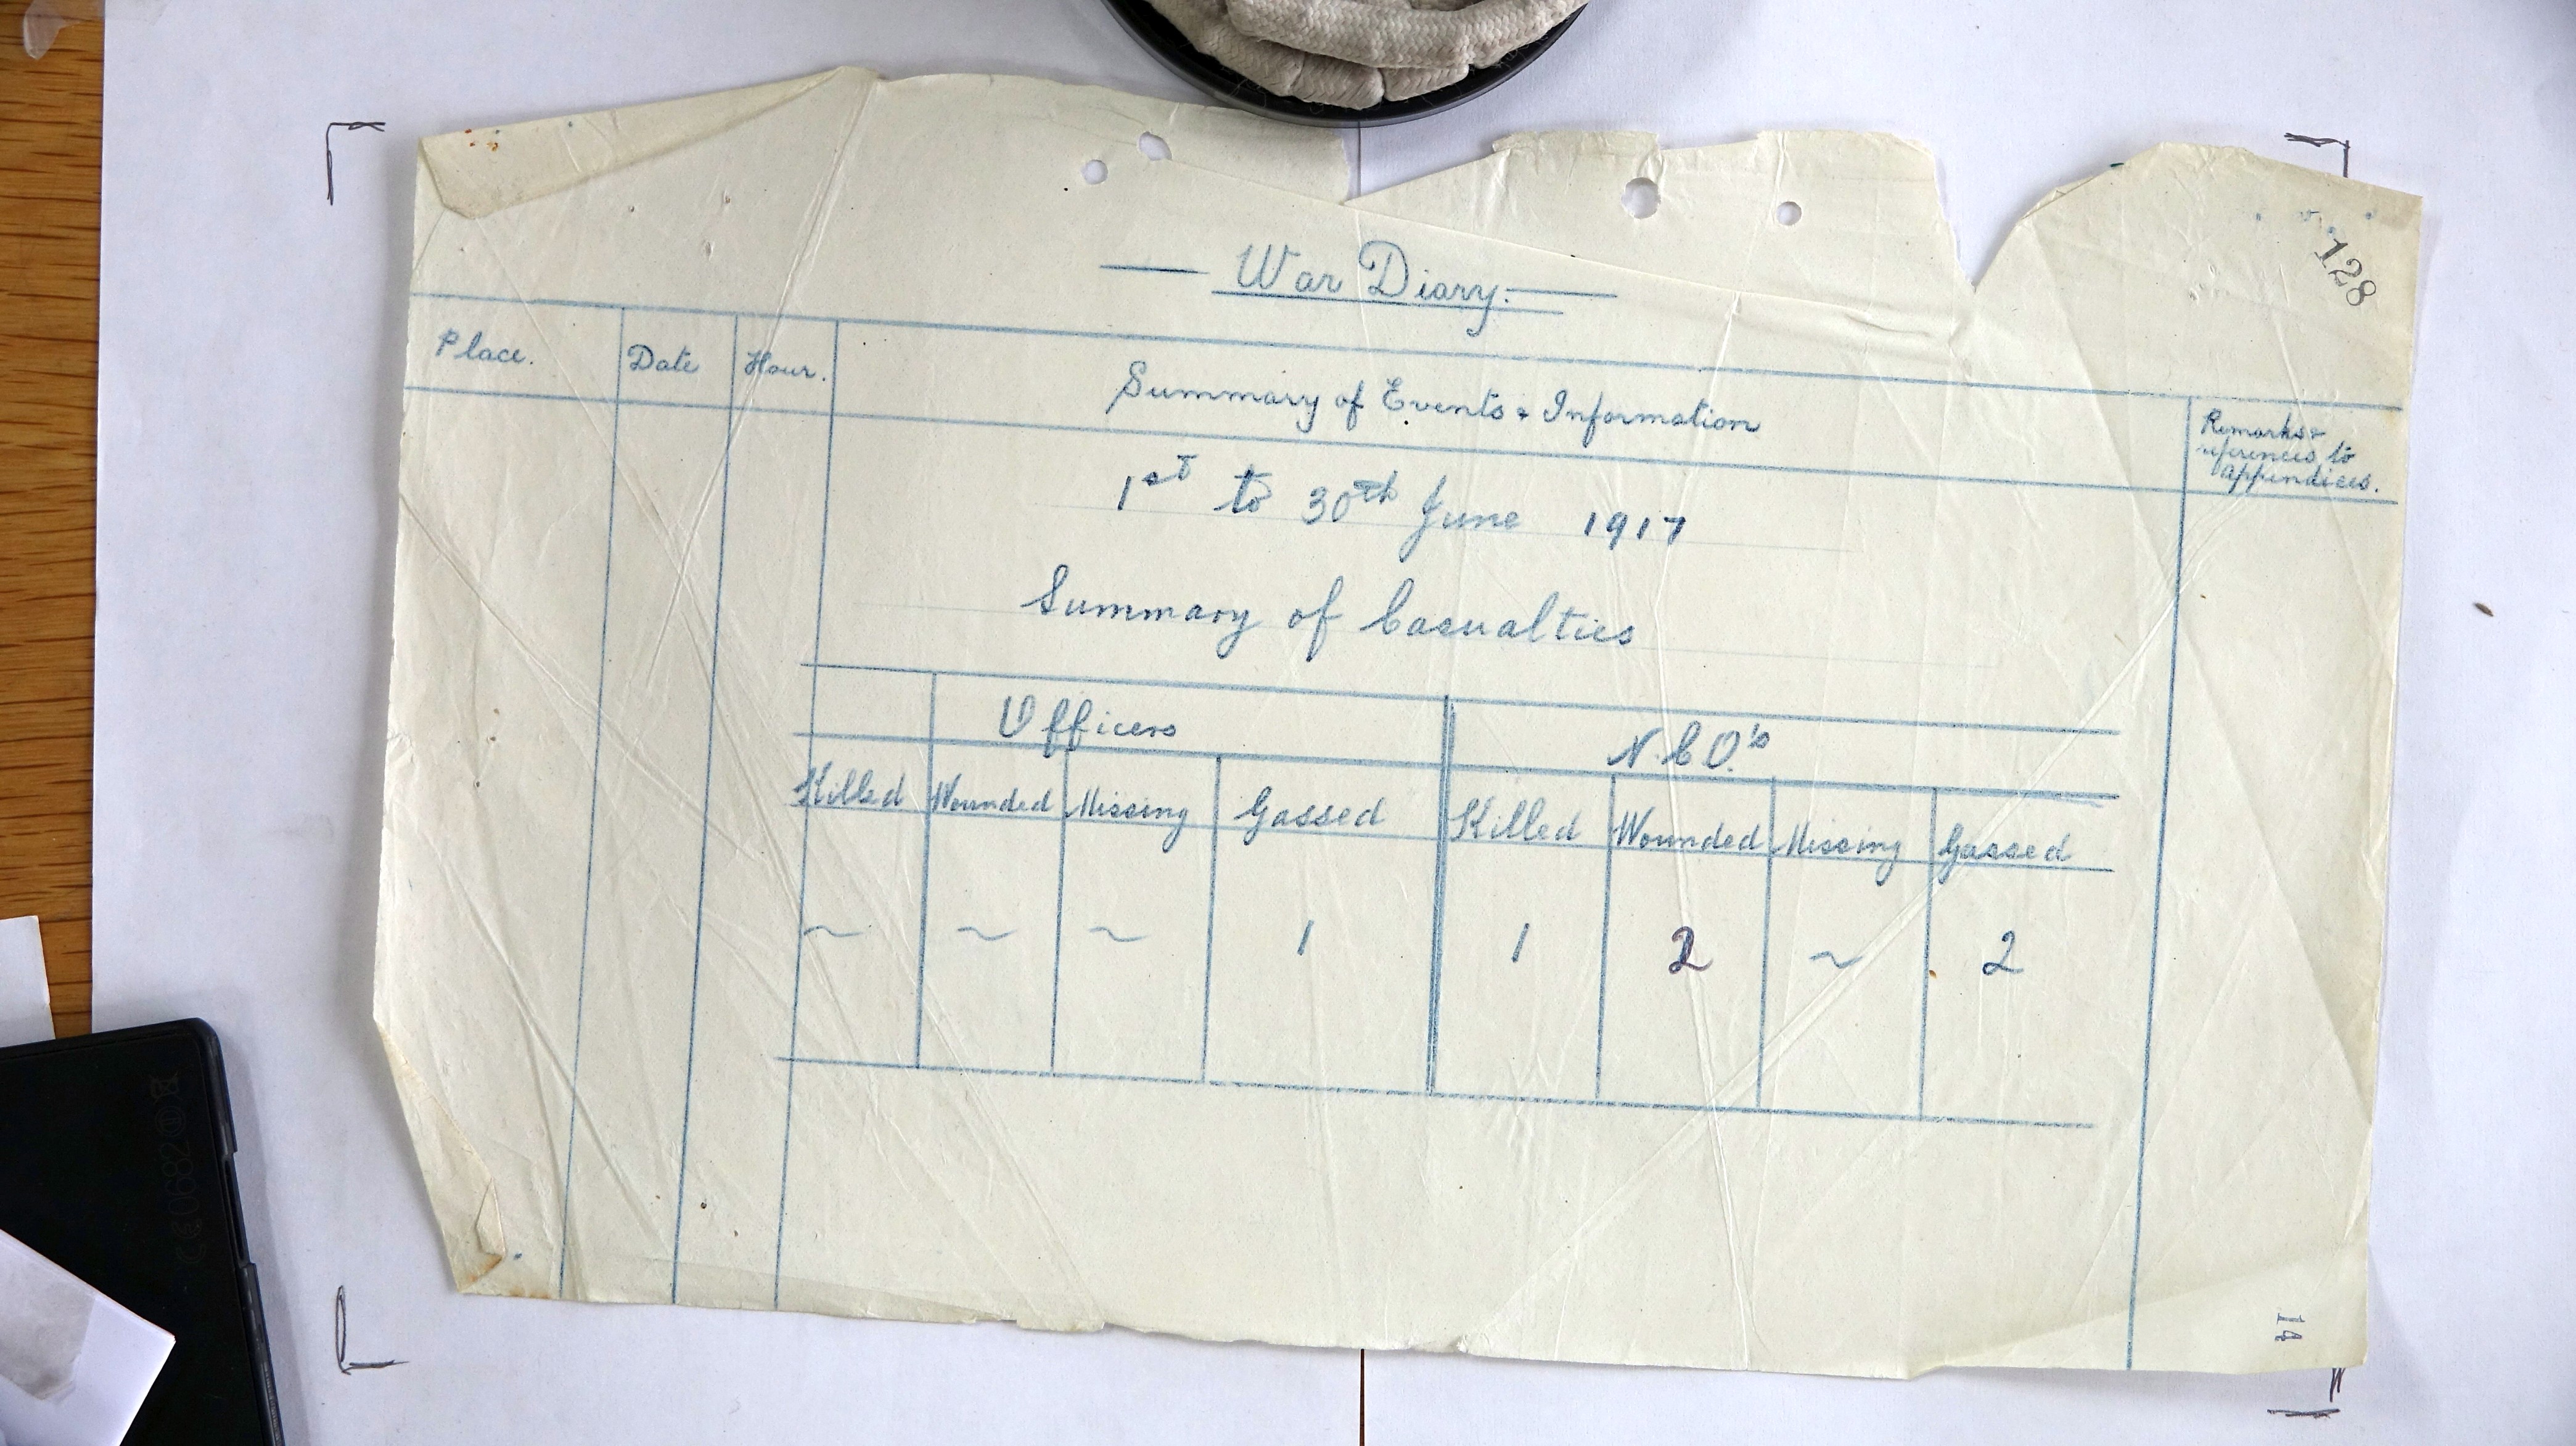 128
War Diary.
Place. Date Hour. Summary of Events & Information Remarks &
references to
appendices.
1st to 30th June 1917
Summary of Casualties
Officers N.C.O.'s
Killed Wounded Missing Gassed Killed Wounded Missing Gassed
~ ~ ~ 1 1 2 ~ 2
14